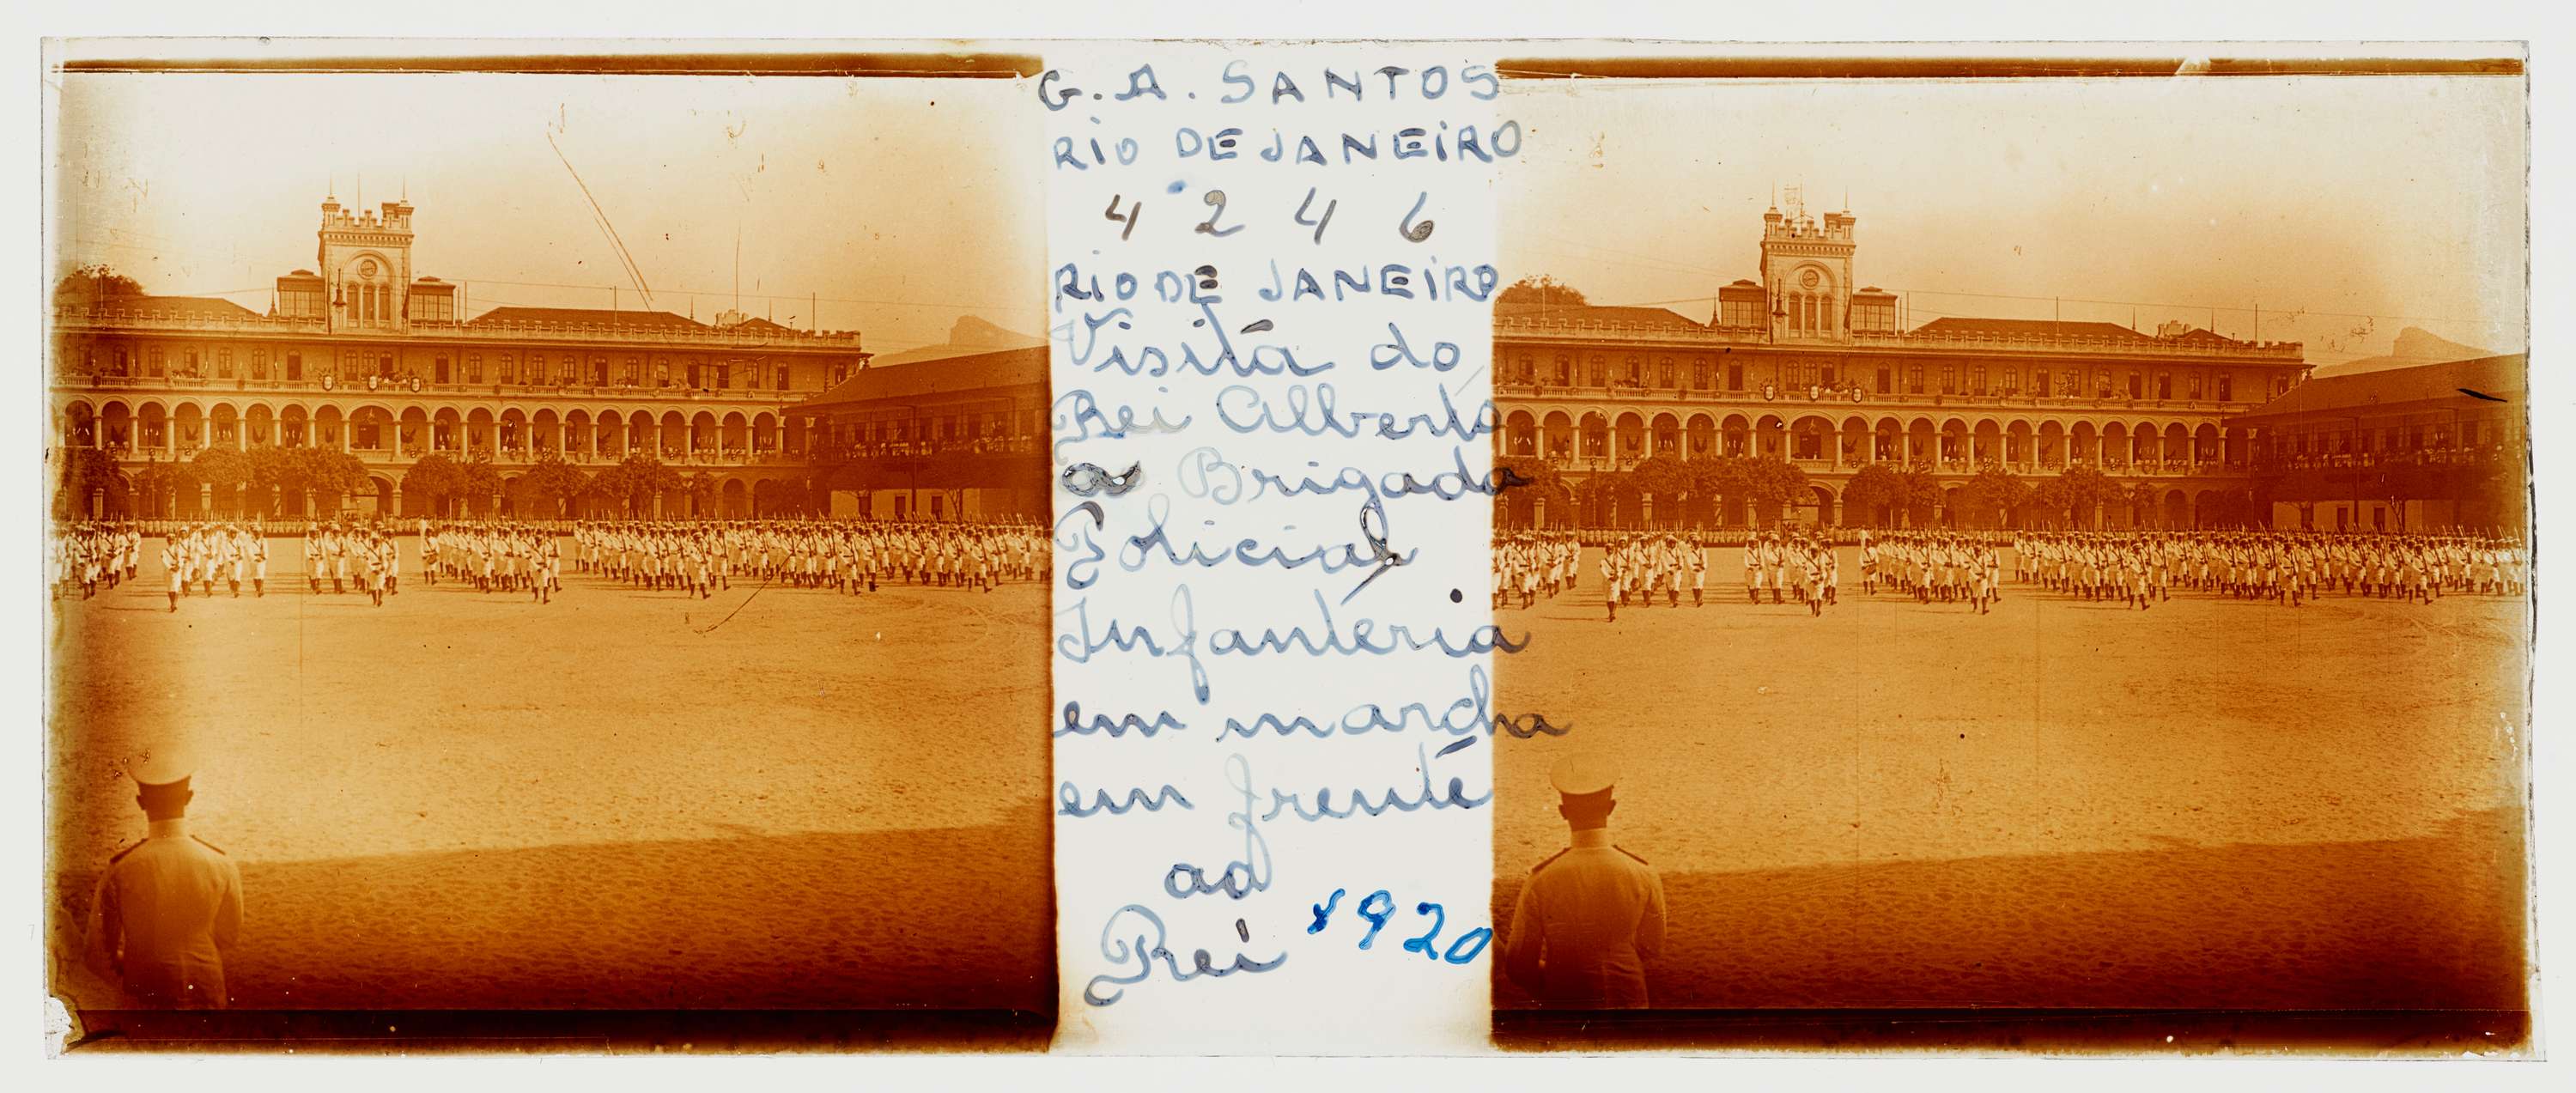 G. A. SANTOS
RIO DE JANEIRO
4 2 4 6
RIO DE JANEIRO
Visita do
Rei Alberto
a Brigada
Policial
Infanteria
em marcha
em frente
ao
Rei 1920